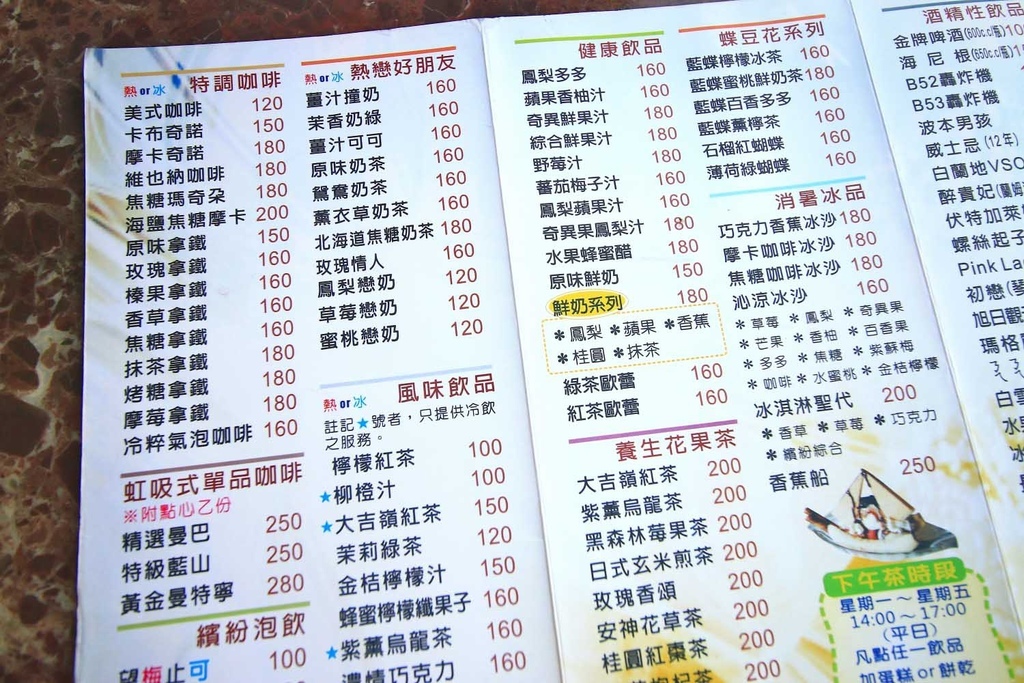 特調咖啡
熱or冰
美式咖啡 120
卡布奇諾 150
摩卡奇諾 180
維也納咖啡 180
焦糖瑪奇朵 180
海鹽焦糖摩卡 200
原味拿鐵 150
玫瑰拿鐵 160
榛果拿鐵 160
香草拿鐵 160
焦糖拿鐵 160
抹茶拿鐵 180
烤糖拿鐵 180
摩莓拿鐵 180
冷粹氣泡咖啡 160
虹吸式單品咖啡
※附點心乙份
精選曼巴 250
特級藍山 250
黃金曼特寧 280
繽紛泡飲
望梅止可 100
熱or冰 熱戀好朋友
薑汁撞奶 160
茉香奶綠 160
薑汁可可 160
原味奶茶 160
鴛鴦奶茶 160
薰衣草奶茶 160
北海道焦糖奶茶 180
玫瑰情人 160
鳳梨戀奶 120
草莓戀奶 120
蜜桃戀奶 120
風味飲品
熱or冰
註記★號者,只提供冷飲
之服務。
檸檬紅茶 100
★柳橙汁 100
★大吉嶺紅茶 150
茉莉綠茶 120
金桔檸檬汁 150
蜂蜜檸檬纖果子 160
★紫薰烏龍茶 160
濃情巧克力 160
健康飲品
鳳梨多多 160
蘋果香柚汁 160
奇異鮮果汁 180
綜合鮮果汁 180
野莓汁 180
蕃茄梅子汁 160
鳳梨蘋果汁 160
奇異果鳳梨汁 180
水果蜂蜜醋 180
原味鮮奶 150
鮮奶系列 180
＊鳳梨 ＊蘋果 ＊香蕉
＊桂圓 ＊抹茶
綠茶歐蕾 160
紅茶歐蕾 160
養生花果茶
大吉嶺紅茶 200
紫薰烏龍茶 200
黑森林莓果茶 200
日式玄米煎茶 200
玫瑰香頌 200
安神花草茶 200
桂圓紅棗茶 200
蝶豆花系列
藍蝶檸檬冰茶 160
藍蝶蜜桃鮮奶茶 180
藍蝶百香多多 180
藍蝶薰檸茶 160
石榴紅蝴蝶 160
薄荷綠蝴蝶 160
消暑冰品
巧克力香蕉冰沙 180
摩卡咖啡冰沙 180
焦糖咖啡冰沙 180
沁涼冰沙 160
＊草莓 ＊鳳梨 ＊奇異果
＊芒果 ＊香柚 ＊百香果
＊多多 ＊焦糖 ＊紫蘇梅
＊咖啡 ＊水蜜桃 ＊金桔檸檬
冰淇淋聖代 200
＊香草 ＊草莓 ＊巧克力
＊繽紛綜合
香蕉船 250
下午茶時段
星期一～星期五
14:00～17:00
(平日)
凡點任一飲品
加蛋糕or餅乾
酒精性飲品
金牌啤酒(600c.c/瓶)
海尼根(650c.c/瓶)
B52轟炸機
B53轟炸機
波本男孩
威士忌(12年)
白蘭地VSO
醉貴妃
伏特加萊
螺絲起子
Pink La
初戀
旭日觀
瑪格
白雪
水果